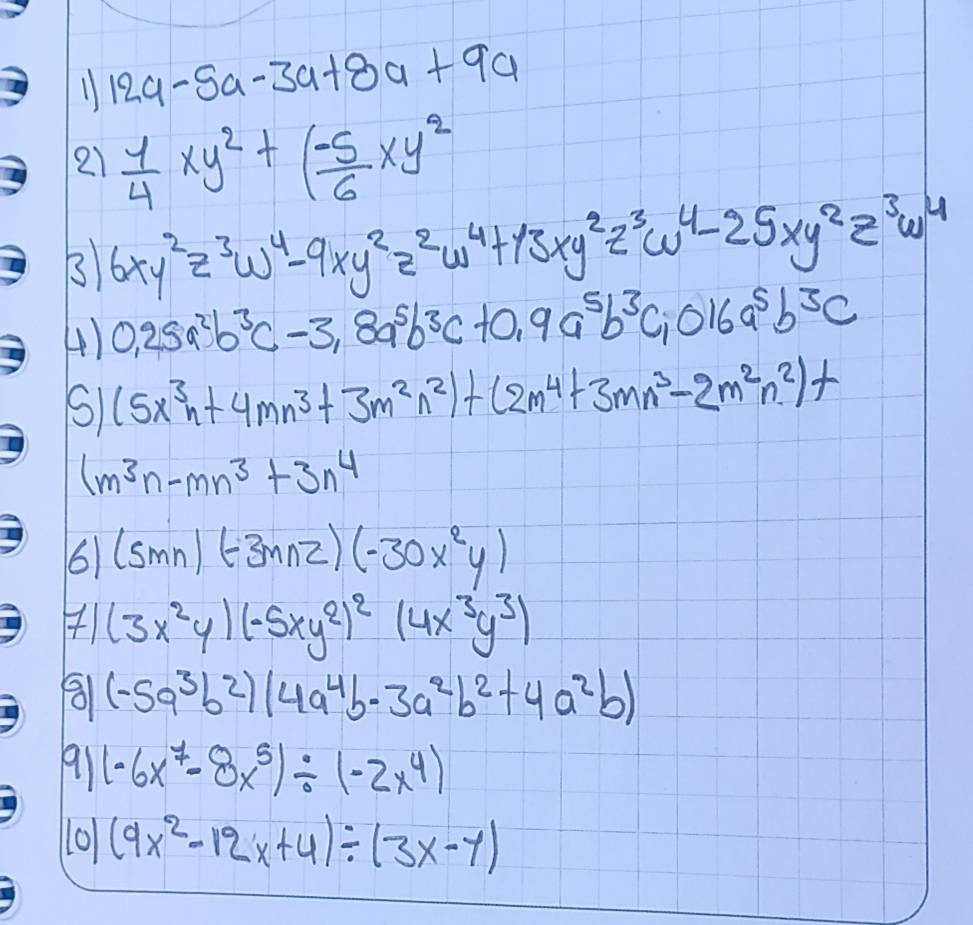 1) 12a-5a-3a+8a+9a
2) 1/4 xy² + (-5/6 xy²
3) 6xy²z³w⁴-9xy²z²w⁴+13xy²z³w⁴-25xy²z³w⁴
4) 0,25a²b³c-3,8a⁵b³c+0,9a⁵b³c,016a⁵b³c
5) (5x³n+4mn³+3m²n²)+(2m⁴+3mn³-2m²n²)+
(m³n-mn³+3n⁴
6) (5mn)(-3mnz)(-30x²y)
7) (3x²y)(-5xy²)² (4x³y³)
8) (-5a³b²)(4a⁴b-3a²b²+4a²b)
9) (-6x⁷-8x⁵)÷(-2x⁴)
10) (9x²-12x+4)÷(3x-1)